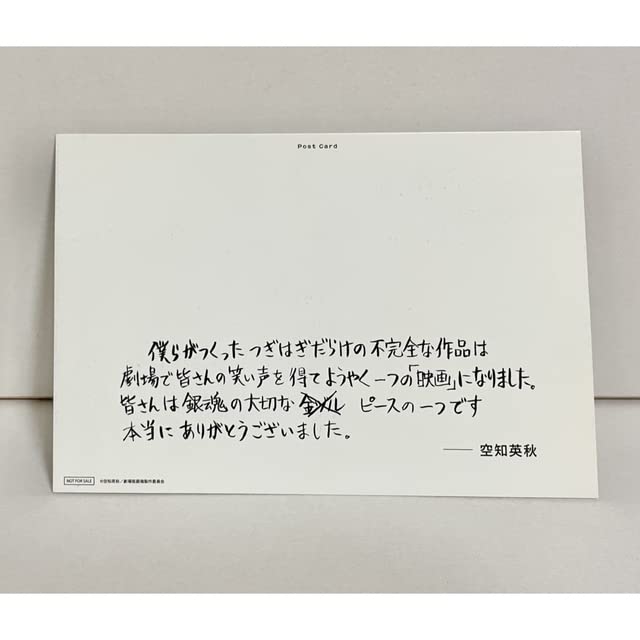 Post Card
僕らがつくったつぎはぎだらけの不完全な作品は
劇場で皆さんの笑い声を得てようやく一つの「映画」になりました。
皆さんは銀魂の大切な ピースの一つです
本当にありがとうございました。
── 空知英秋
NOT FOR SALE ©空知英秋/劇場版銀魂製作委員会